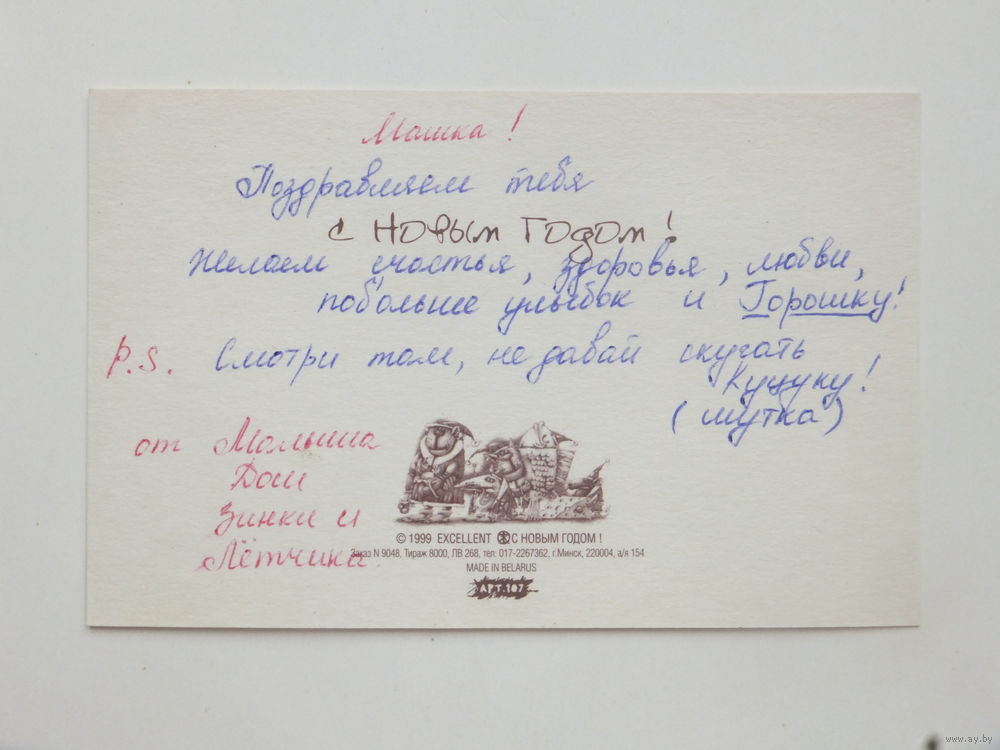 Машка!
Поздравляем тебя
с Новым Годом!
Желаем счастья, здоровья, любви,
побольше улыбок и Горошку!
P.S. Смотри там, не давай скучать
Куцуку!
(шутка)
от Малыша
Даши
Зинки и
Лётчика.
© 1999 EXCELLENT С НОВЫМ ГОДОМ !
Заказ N 9048, Тираж 8000, ЛВ 268, тел: 017-2267362, г.Минск, 220004, а/я 154
MADE IN BELARUS
АРТ.107
www.ay.by